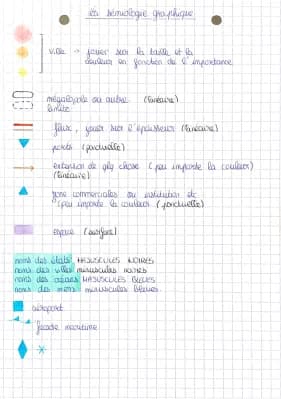 La sémiologie graphique
Ville → jouer sur la taille et la
couleur en fonction de l'importance
mégalopole ou autre (linéaire)
limite
flux, jouer sur l'épaisseur (linéaire)
ports (ponctuelle)
extension de qlq chose (peu importe la couleur)
(linéaire)
zone commerciales ou institution etc
(peu importe la couleur) (ponctuelle)
espace (surface)
noms des états MAJUSCULES NOIRES
noms des villes minuscules noires
noms des océans MAJUSCULES BLEUES
noms des mers minuscules bleues
aéroport
façade maritime